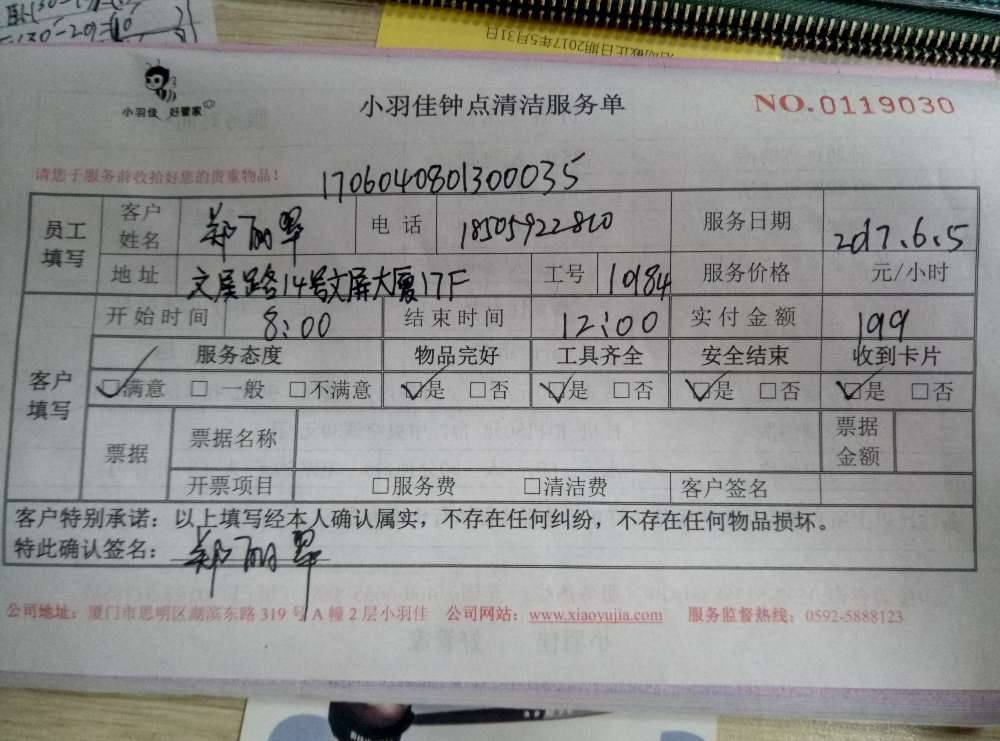 活动截止日期2017年5月31日
小羽佳 好管家
小羽佳钟点清洁服务单
NO.0119030
请您于服务前收拾好您的贵重物品!
1706040801300035
员工填写 客户姓名 郑丽翠 电话 18505922810 服务日期 2017.6.5
地址 文屏路14号文屏大厦17F 工号 1984 服务价格 元/小时
客户填写 开始时间 8:00 结束时间 12:00 实付金额 199
服务态度 物品完好 工具齐全 安全结束 收到卡片
☑满意 □一般 □不满意 ☑是 □否 ☑是 □否 ☑是 □否 ☑是 □否
票据 票据名称 票据金额
开票项目 □服务费 □清洁费 客户签名
客户特别承诺：以上填写经本人确认属实，不存在任何纠纷，不存在任何物品损坏。
特此确认签名：郑丽翠
公司地址：厦门市思明区湖滨东路 319 号 A 幢 2 层小羽佳 公司网站：www.xiaoyujia.com 服务监督热线：0592-5888123